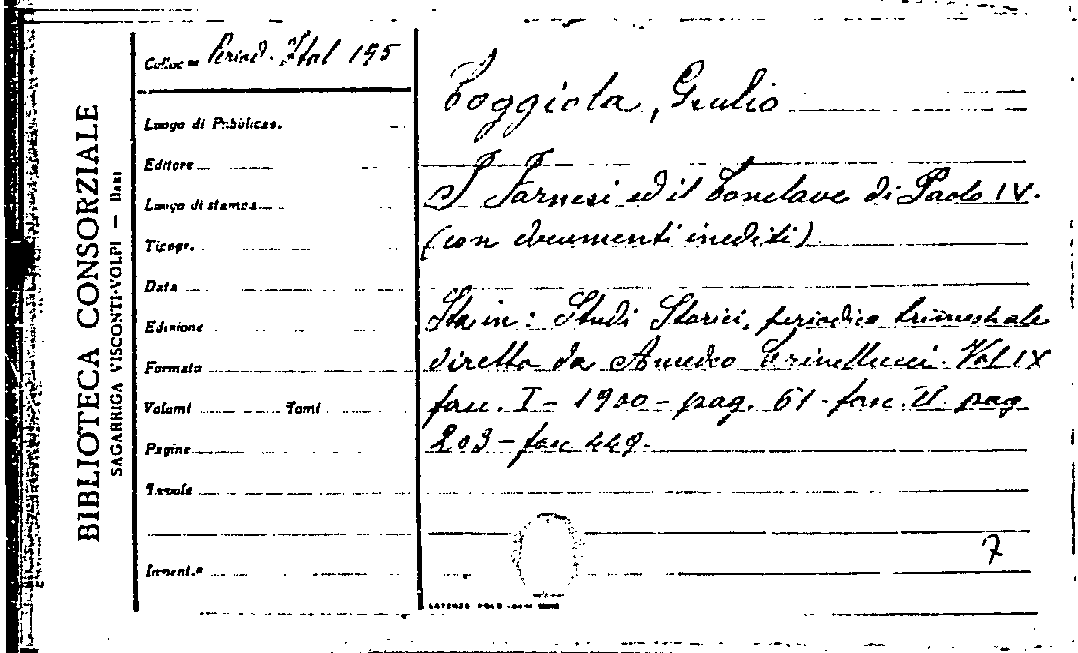 BIBLIOTECA CONSORZIALE
SAGARRIGA VISCONTI-VOLPI — BARI
Colloc.ne Period. Ital 195
Luogo di Pubblicaz.
Editore
Luogo di stampa
Tipogr.
Data
Edizione
Formato
Volumi Tomi
Pagine
Tavole
Invent.
Coggiola, Giulio
I Farnesi ed il Conclave di Paolo IV.
(con documenti inediti)
Sta in: Studi Storici, periodico trimestrale
diretto da Amedeo Crivellucci. Vol IX
fasc. I - 1900 - pag. 61 - fasc. II pag
203 - fasc 449.
7